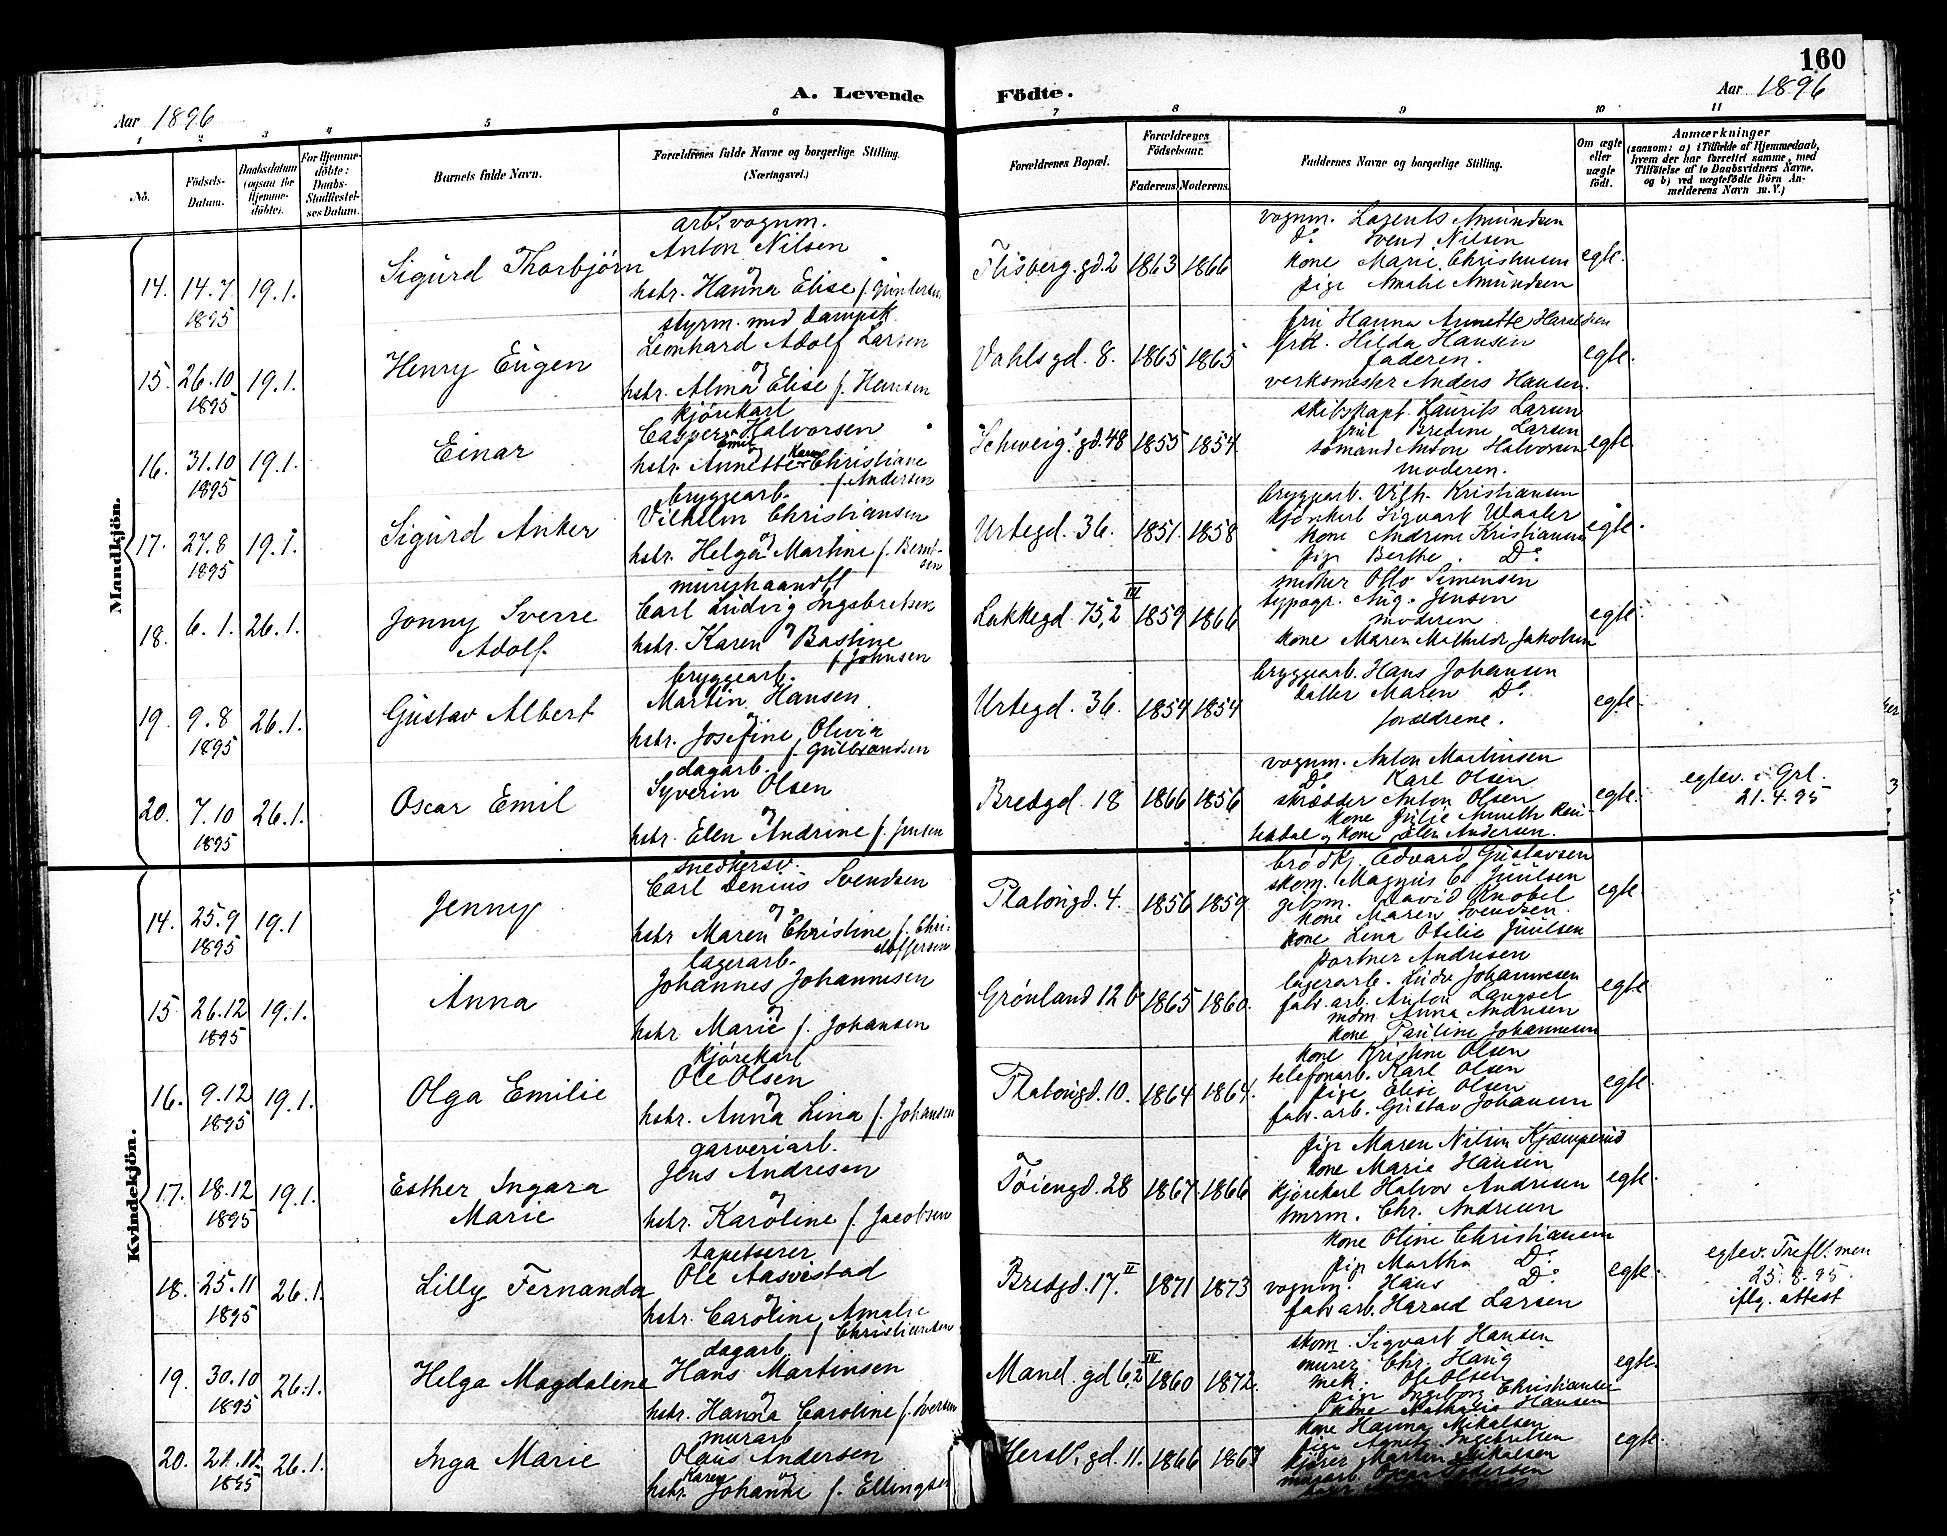 160
Aar 1896
A. Levende Födte.
Aar 1896
1 2 3 4 5 6 7 8 9 10 11
No.
Födsels-Datum.
Daabsdatum (ogsaa for Hjemme-döbte).
For Hjemme-döbte: Daabs-Stadfæstel-ses Datum.
Barnets fulde Navn.
Forældrenes fulde Navne og borgerlige Stilling.
(Næringsvei.)
Forældrenes Bopæl.
Forældrenes Födselsaar.
Faderens. Moderens.
Faddernes Navne og borgerlige Stilling.
Om ægte eller uægte födt.
Anmærkninger
(saasom: a) i Tilfælde af Hjemmedaab,
hvem der har forrettet samme, med
Tilföielse af to Daabsvidners Navne,
og b) ved uægtefödte Börn An-
melderens Navn m. V.)
Mandkjön.
14. 14.7 1895 19.1. Sigurd Thorbjørn
arb. vognm.
Anton Nilsen
og
hstr. Hanna Elise f.
Flisberg.gd.2 1863 1866
vognm. Larents Amundsen
Do Svend Nilsen
kone Marie Christensen
pige Amalie Amundsen
egte.
15. 26.10 1895 19.1. Henry Eugen
styrm. med dampsk.
Leonhard Adolf Larsen
og
hstr. Alma Elise f. Hansen
Vahlsgd. 8. 1865 1865
fru Hanna Annette Haraldsen
frk. Hilda Hansen
faderen.
verksmester Anders Hansen.
egte.
16. 31.10 1895 19.1. Einar
kjørekarl
Casper Emil Halvorsen
og
hstr. Annette Karen Christiane
f. Andersen
Schweig.gd.48 1855 1854
skibskapt. Laurits Larsen
frue Bredine Larsen
sømand Anton Halvorsen
moderen.
egte
17. 27.8 1895 19.1. Sigurd Anker
bryggearb.
Vilhelm Christiansen
og
hstr. Helga Martine f. Bernt-
sen
Urtegd. 36. 1851. 1858
bryggearb. Vilh. Kristiansen
kjørekarl Sigvart Waaler
kone Andrine Kristiansen
pige Berthe Do
egte.
18. 6.1. 26.1. Jonny Sverre
Adolf
murerhaandt.
Carl Ludvig Ingebretsen
og
hstr. Karen Bastine
f. Johnsen
Lakkegd. 75,2 III 1859 1866
mester Otto Simensen
typogr. Aug. Jensen
moderen
kone Maren Mathilde Jakobsen
egte.
19. 9.8 1895 26.1. Gustav Albert
bryggearb.
Martin Hansen.
og
hstr. Josefine Olivia
f. Gulbrandsen
Urtegd. 36. 1854 1854
bryggearb. Hans Johansen
datter Maren Do
forældrene.
egte.
20. 7.10 1895 26.1. Oscar Emil
dagarb.
Syverin Olsen
og
hstr. Elen Andrine f. Jensen
Bredgd. 18 1866 1856
vognm. Anton Martinsen
Do Karl Olsen
skrædder Anton Olsen
kone Julie Annette
kone Elen Andersen.
egte.
egtev. i Grl.
21.4.95
Kvindekjön.
14. 25.9 1895 19.1 Jenny
snedkersv.
Carl Denius Svendsen
og
hstr Maren Christine f. Chri-
stoffersen
Platougd. 4. 1856 1859
brødkj. Edvard Gustavsen
skom. Magnus C. Juulsen
gibsm. David Knobel
kone Maren Svendsen.
kone Lina Otilie Juulsen
egte
15 26.12 1895 19.1. Anna
lagerarb.
Johannes Johannesen
og
hstr. Marie f. Johansen
Grønland 12 b 1865 1860.
portner Andresen
lagerarb. Ludv Johannesen
fabr.arb. Anton Langset
mdm. Anna Andresen
kone Pauline Johannesen
egte
16. 9.12 1895 19.1. Olga Emilie
kjørekarl
Ole Olsen
og
hstr. Anna Lina f. Johansen
Platougd. 10. 1864 1864.
kone Kristine Olsen
telefonarb. Karl Olsen
pige Elise Olsen
fabr.arb. Gustav Johansen
egte.
17. 18.12 1895 19.1. Esther Ingara
Marie
garveriarb.
Jens Andresen
og
hstr. Karoline f. Jacobsen
Tøiengd. 28 1867 1866
pige Maren Nilsen Kjæmperud
kone Marie Hansen
kjørekarl Halvor Andresen
tmrm. Chr. Andresen
egte.
18. 25.11 1895 26.1. Lilly Fernanda
tapetserer
Ole Aasvestad
og
hstr. Caroline Amalie
f. Christiansen
Bredgd. 17. II 1871 1873
kone Oline Christiansen
pige Martha Do
vognm. Hans Do
fabr.arb. Harald Larsen
egte.
egtev. Trefl. men
25.8.95.
iflg. attest
19. 30.10 1895 26.1. Helga Magdalene
dagarb.
Hans Martinsen
og
hstr. Hanna Caroline f. Iversen
Mand. gd 6,2 IV 1860 1872.
skom. Sigvart Hansen
murer Chr. Haug
mek. Ole Olsen
pige Ingeborg Christiansen
kone Nathalia Hansen
egte.
20. 21.12 1895 26.1. Inga Marie
murarb
Olaus Andersen
og
hstr. Karen Johanne f. Ellingsen
Hersl. gd. 11. 1866 1867
kone Hanna Mikalsen
pige Agnete Ingebretsen
kjører Martin Mikalsen
egte.